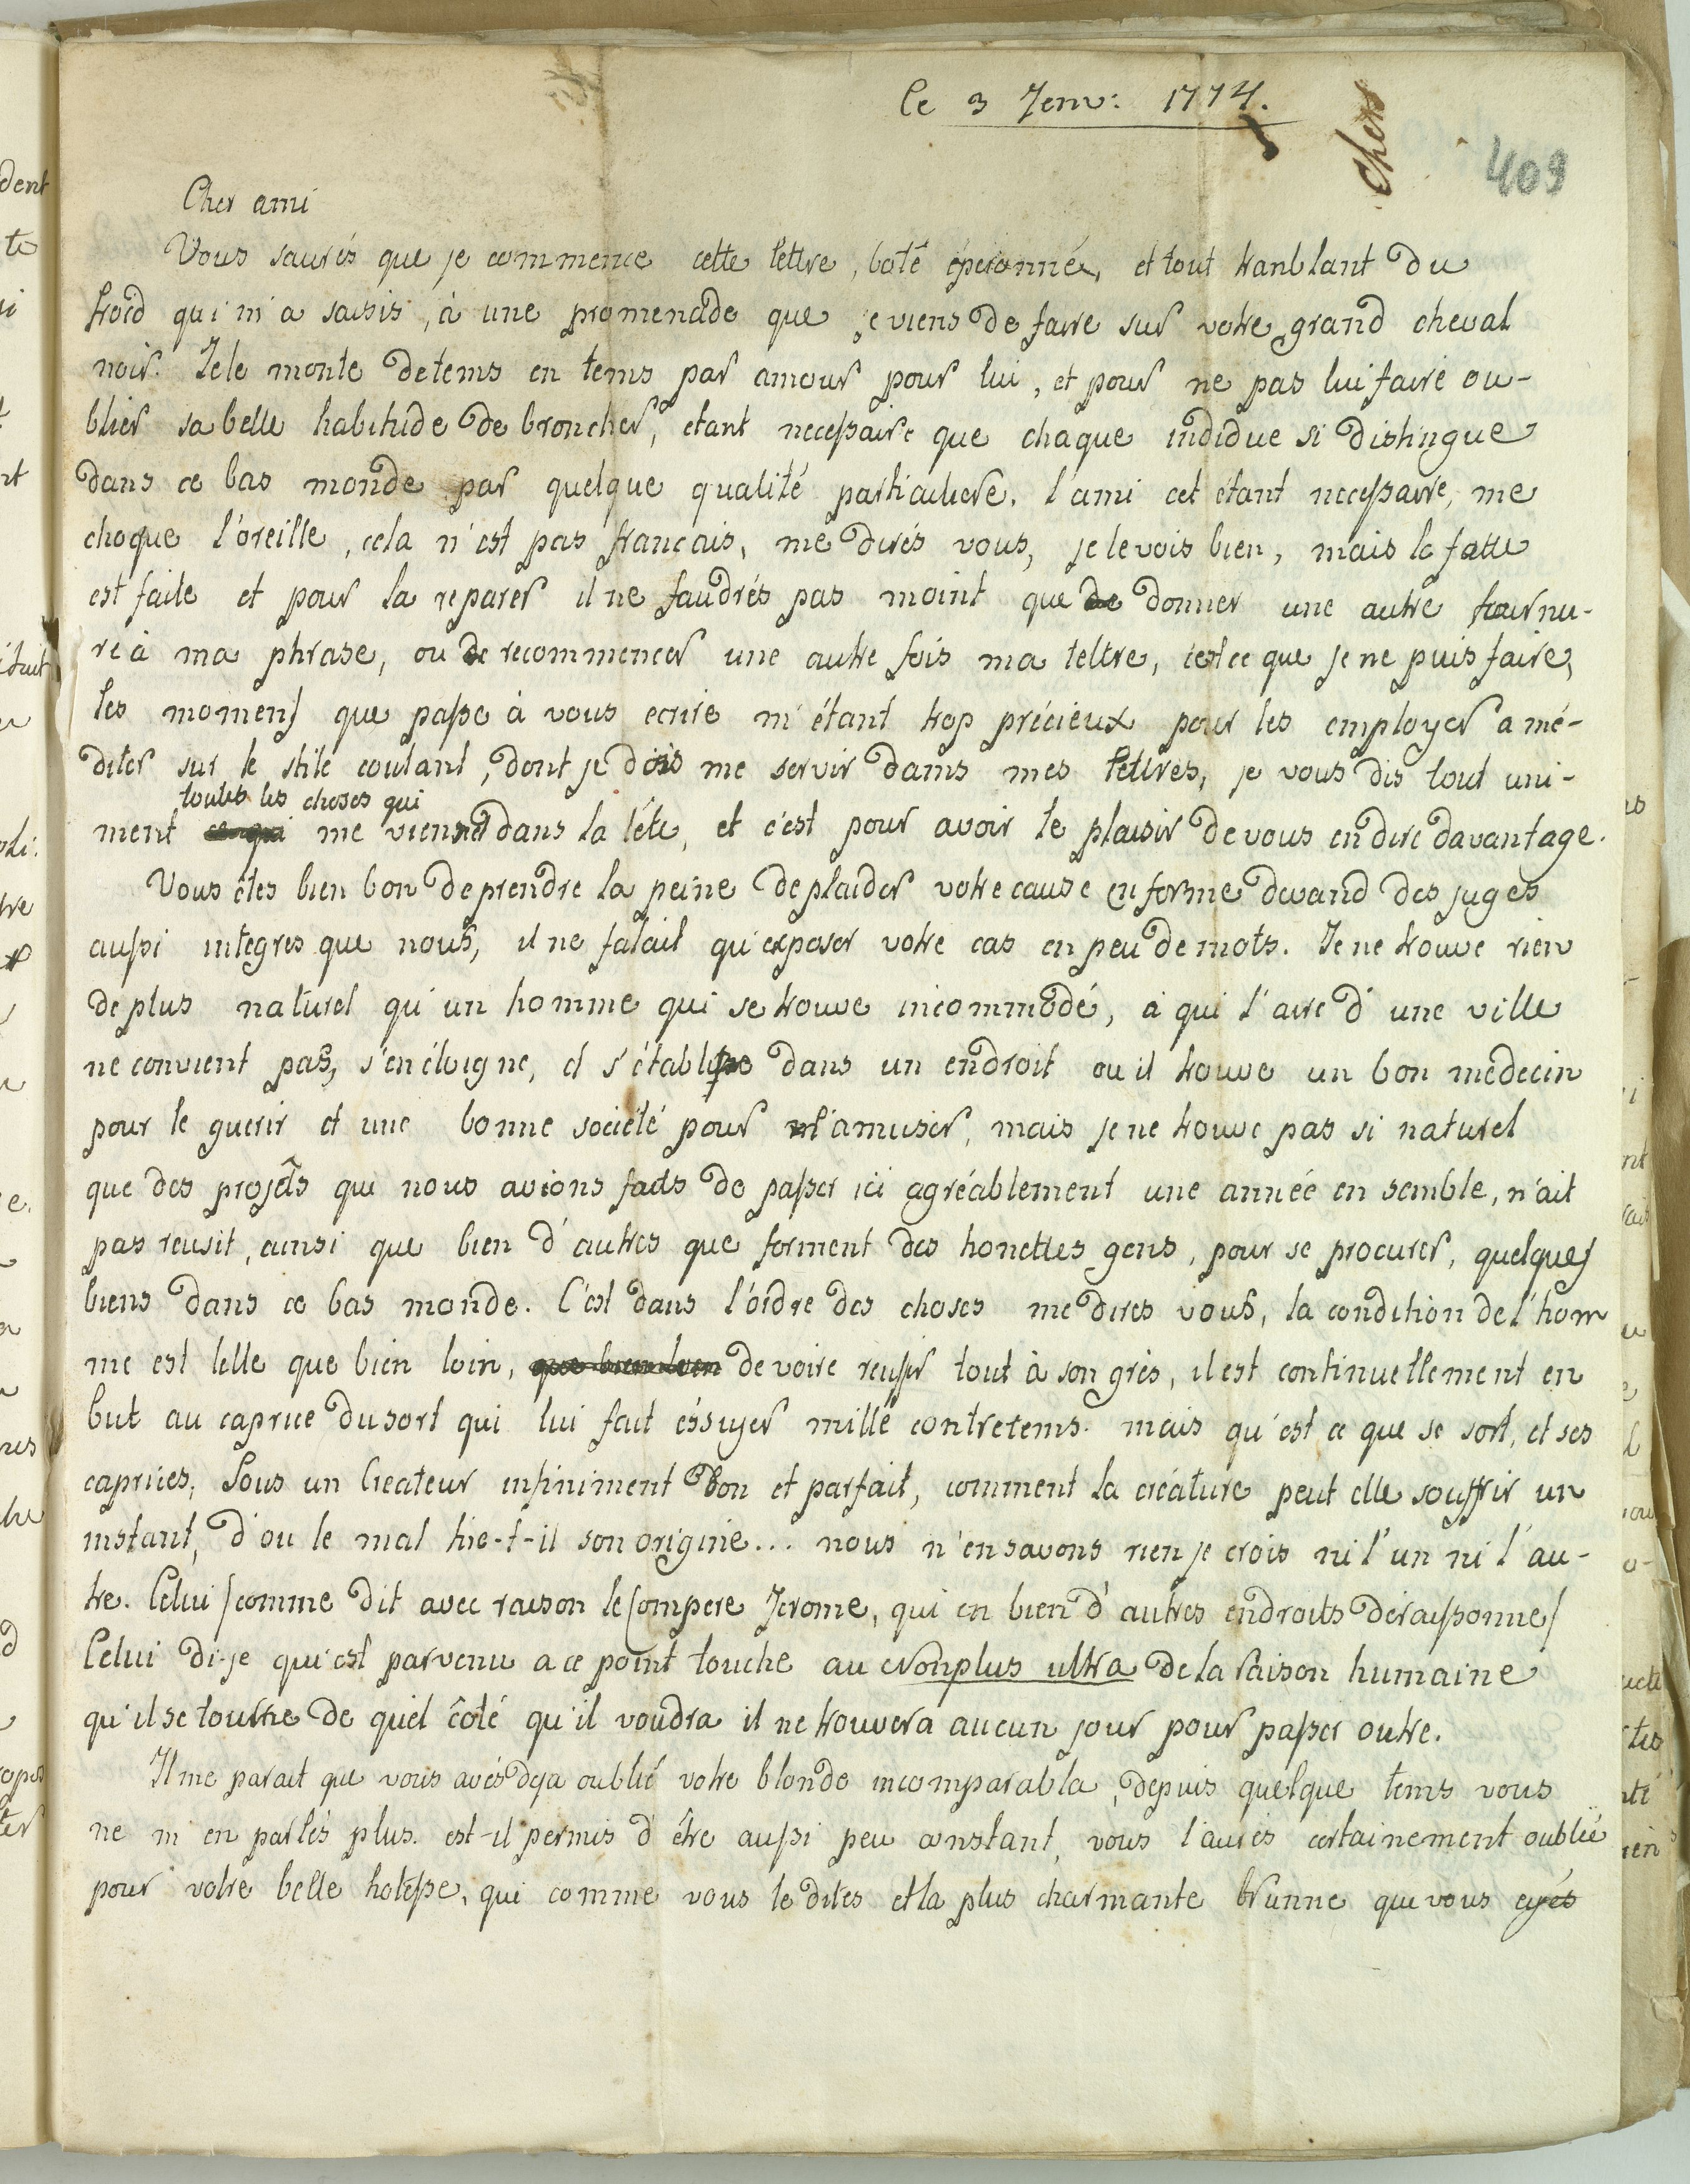 le 3 Jenv: 1774.
chers
409
Cher ami
Vous saurés que je commence cette lettre, boté éperonné, et tout tranblant du
froid qui m'a saisis, à une promenade que je viens de faire sur votre grand cheval
noir. Je le monte de tems en tems par amour pour lui, et pour ne pas lui faire ou-
blier sa belle habitude de broncher, etant necessaire que chaque indidue si distingue
dans ce bas monde par quelque qualité particuliere. l'ami cet étant necessaire, me
choque l'oreille, cela n'est pas francais, me dirés vous, je le vois bien, mais la fatte
est faite et pour la reparer il ne faudrés pas moint que de donner une autre tournu-
re à ma phrase, ou de recommencer une autre fois ma lettre, cest ce que je ne puis faire,
les momens que passe à vous ecrire m'étant trop précieux pour les employer a mé-
diter sur le stile coulant, dont je dois me servir dams mes lettres, je vous dis tout uni-
toutes les choses qui
ment ce qui me viennet dans la tête, et c'est pour avoir le plaisir de vous en dire davantage.
Vous êtes bien bon de prendre la peine de plaider votre cause en forme devand des juges
aussi integres que nous, il ne falait qu'exposer votre cas en peu de mots. Je ne trouve rien
de plus naturel qu'un homme qui se trouve incommodé, à qui l'aire d'une ville
ne convient pas, s'en éloigne, et s'établisse dans un endroit ou il trouve un bon médecin
pour le guerir et une bonne société pour l'amuser, mais je ne trouve pas si naturel
que des projêts que nous avions faits de passer ici agréablement une année en semble, n'ait
pas reusit, ainsi que bien d'autres que forment des honettes gens, pour se procurer, quelques
biens dans ce bas monde. C'est dans l'ordre des choses me dires vous, la condition de l'hom
me est telle que bien loin, que bien loin de voire reussir tout à son grés, il est continuellement en
but au caprice du sort qui lui fait éssuyer mille contretems. mais qu'est ce que se sort, et ses
caprices, Sous un Createur infiniment bon et parfait, comment la créature peut elle souffrir un
instant, d'ou le mal tire-t-il son origine... nous n'en savons rien je crois ni l'un ni l'au-
tre. Celui /comme dit avec raison le Compere Jerome, qui en bien d'autres endroits déraisonne/
Celui di-je qui est parvenu a ce point touche au Nonplus ultra de la raison humaine
qu'il se tourne de quel côté qu'il voudra il ne trouvera aucun jour pour passer outre.
Il me parait que vous avés deja oublié votre blonde incomparabla, depuis quelque tems vous
ne m'en parlés plus. est-il permis d'être aussi peu constant, vous l'aurés certainement oubliée
pour votre belle hotesse, qui comme vous le dites et la plus charmante brunne que vous eyés